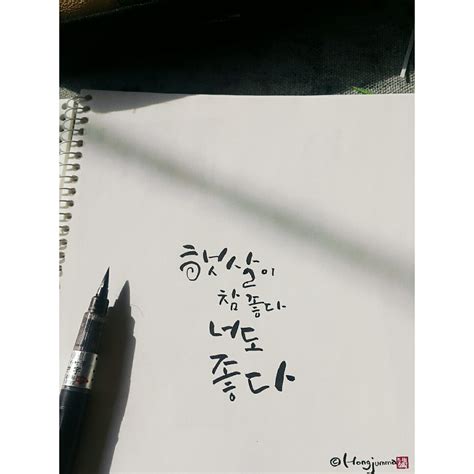 햇살이
참 좋다
너도
좋다
©Hongjunmo